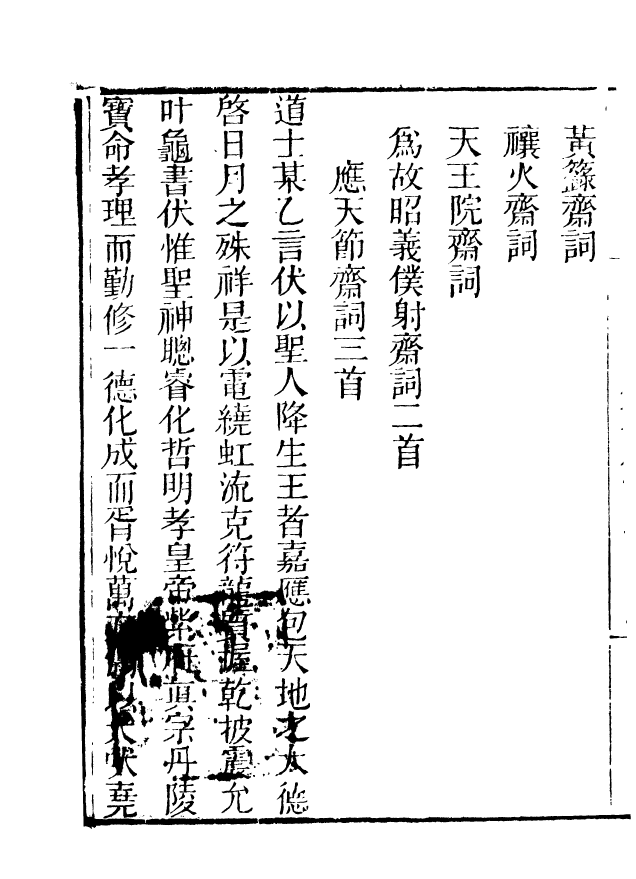 黃籙齋詞
禳火齋詞
天王院齋詞
爲故昭義僕射齋詞二首
應天節齋詞三首
道士某乙言伏以聖人降生王者嘉應包天地之大德
啓日月之殊祥是以電繞虹流克符龍質握乾披震允
叶龜書伏惟聖神聰睿化哲明孝皇帝紫府眞宗丹陵
寶命孝理而勤修一德化成而胥悅萬 伏堯